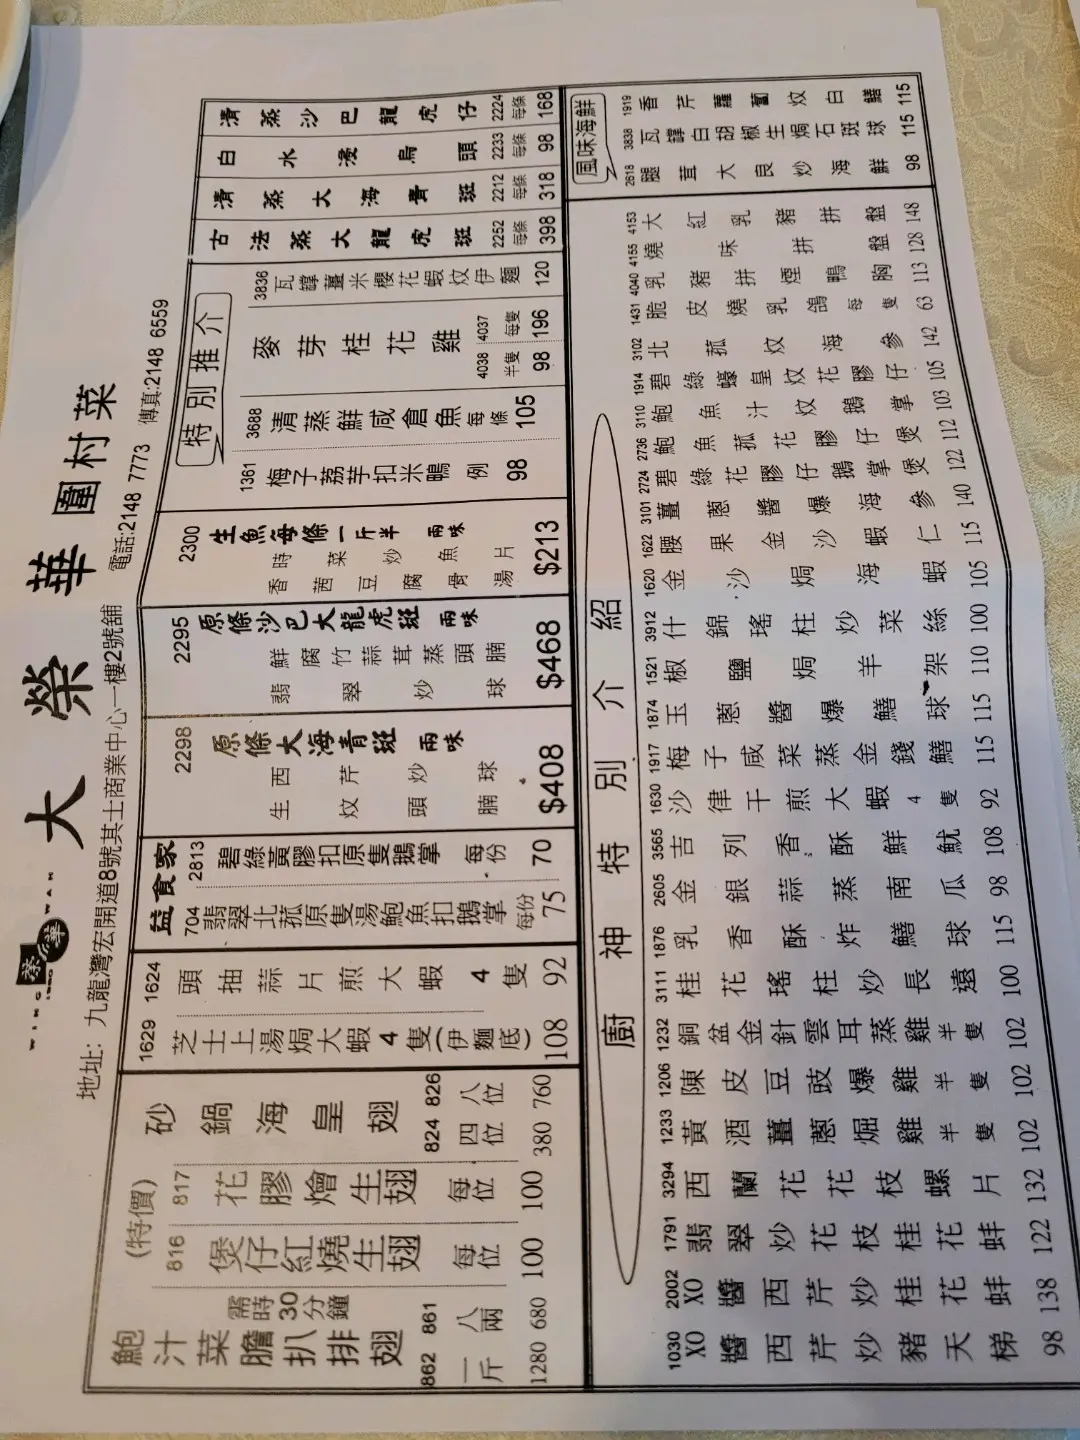 WING WAH
1950
榮華
大榮華圍村菜
地址: 九龍灣宏開道8號其士商業中心一樓2號舖 電話:2148 7773 傳真:2148 6559
鮑汁菜膽扒排翅
需時30分鐘
862 一斤 1280
861 八兩 680
(特價)
816 煲仔紅燒生翅 每位 100
817 花膠燴生翅 每位 100
砂鍋海皇翅
824 四位 380
826 八位 760
1629 芝士上湯焗大蝦4隻(伊麵底) 108
1624 頭抽蒜片煎大蝦4隻 92
益食家
704 翡翠北菰原隻湯鮑魚扣鵝掌 每份 75
2813 碧綠黃膠扣原隻鵝掌 每份 70
2298
原條大海青斑 兩味
生炆頭腩
西芹炒球
$408
2295
原條沙巴大龍虎斑 兩味
翡翠炒球
鮮腐竹蒜茸蒸頭腩
$468
2300
生魚每條一斤半 兩味
時菜炒魚片
香茜豆腐魚骨湯
$213
特別推介
1361 梅子荔芋扣米鴨 例 98
3688 清蒸鮮咸倉魚 每條 105
麥芽桂花雞
4038 半隻 98
4037 每隻 196
3836 瓦罉薑米櫻花蝦炆伊麵 120
古法蒸大龍虎斑 2252 每條 398
清蒸大海青斑 2212 每條 318
白水浸烏頭 2233 每條 98
清蒸沙巴龍虎仔 2224 每條 168
廚神特別介紹
1030 XO醬西芹炒豬天梯 98
2002 XO醬西芹炒桂花蚌 138
1791 翡翠炒花枝桂花蚌 122
3294 西蘭花花枝螺片 132
1233 黃酒薑蔥焗雞半隻 102
1206 陳皮豆豉爆雞半隻 102
1232 銅盆金針雲耳蒸雞半隻 102
3111 桂花瑤柱炒長遠 100
1876 乳香酥炸鱔球 115
2605 金銀蒜蒸南瓜 98
3565 吉列香酥鮮魷 108
1630 沙律干煎大蝦4隻 92
1917 梅子咸菜蒸金錢鱔 115
1874 玉蔥醬爆鱔球 115
1521 椒鹽焗羊架 110
3912 什錦瑤柱炒菜絲 100
1620 金沙焗海蝦 105
1622 腰果金沙蝦仁 115
3101 薑蔥醬爆海參 140
2724 碧綠花膠仔鵝掌煲 122
2736 鮑魚菰花膠仔煲 112
3110 鮑魚汁炆鵝掌 103
1914 碧綠蠔皇炆花膠仔 105
3102 北菰炆海參 142
1431 脆皮燒乳鴿每隻 63
4040 乳豬拼煙鴨胸 113
4155 燒味拼盤 128
4153 大紅乳豬拼盤 148
風味海鮮
2618 腿茸大良炒海鮮 98
3838 瓦罉白胡椒生焗石斑球 115
1919 香芹蘿蔔炆白鱔 115